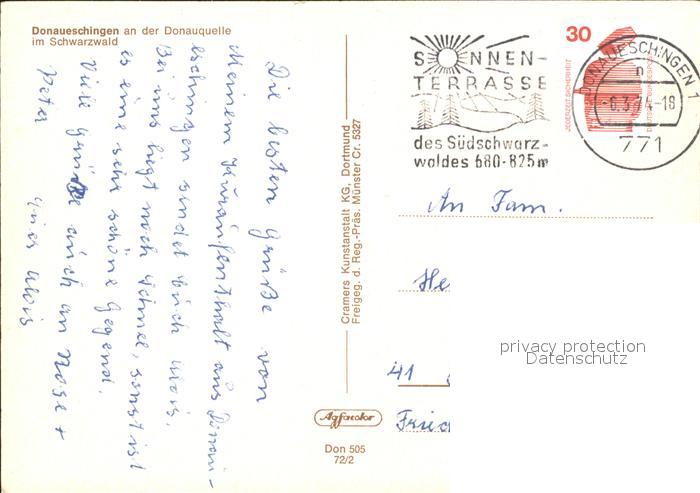 Donaueschingen an der Donauquelle
im Schwarzwald
Die besten Grüße von
Meinem Kuraufenthalt aus Donau-
eschingen sendet Euch Alois.
Bei uns liegt noch Schnee, sonst ist
es eine sehr schöne Gegend.
Viele Grüße auch an Rose +
Peter
Euer Alois
Cramers Kunstanstalt KG, Dortmund
Freigeg. d. Reg.-Präs. Münster Cr. 5327
Agfacolor
Don 505
72/2
SONNEN-
TERRASSE
des Südschwarz-
waldes 680-825m
30
JEDERZEIT SICHERHEIT
DEUTSCHE BUNDESPOST
DONAUESCHINGEN 1
n
-6.3.74-18
771
An Fam.
He
41
Fried
privacy protection
Datenschutz